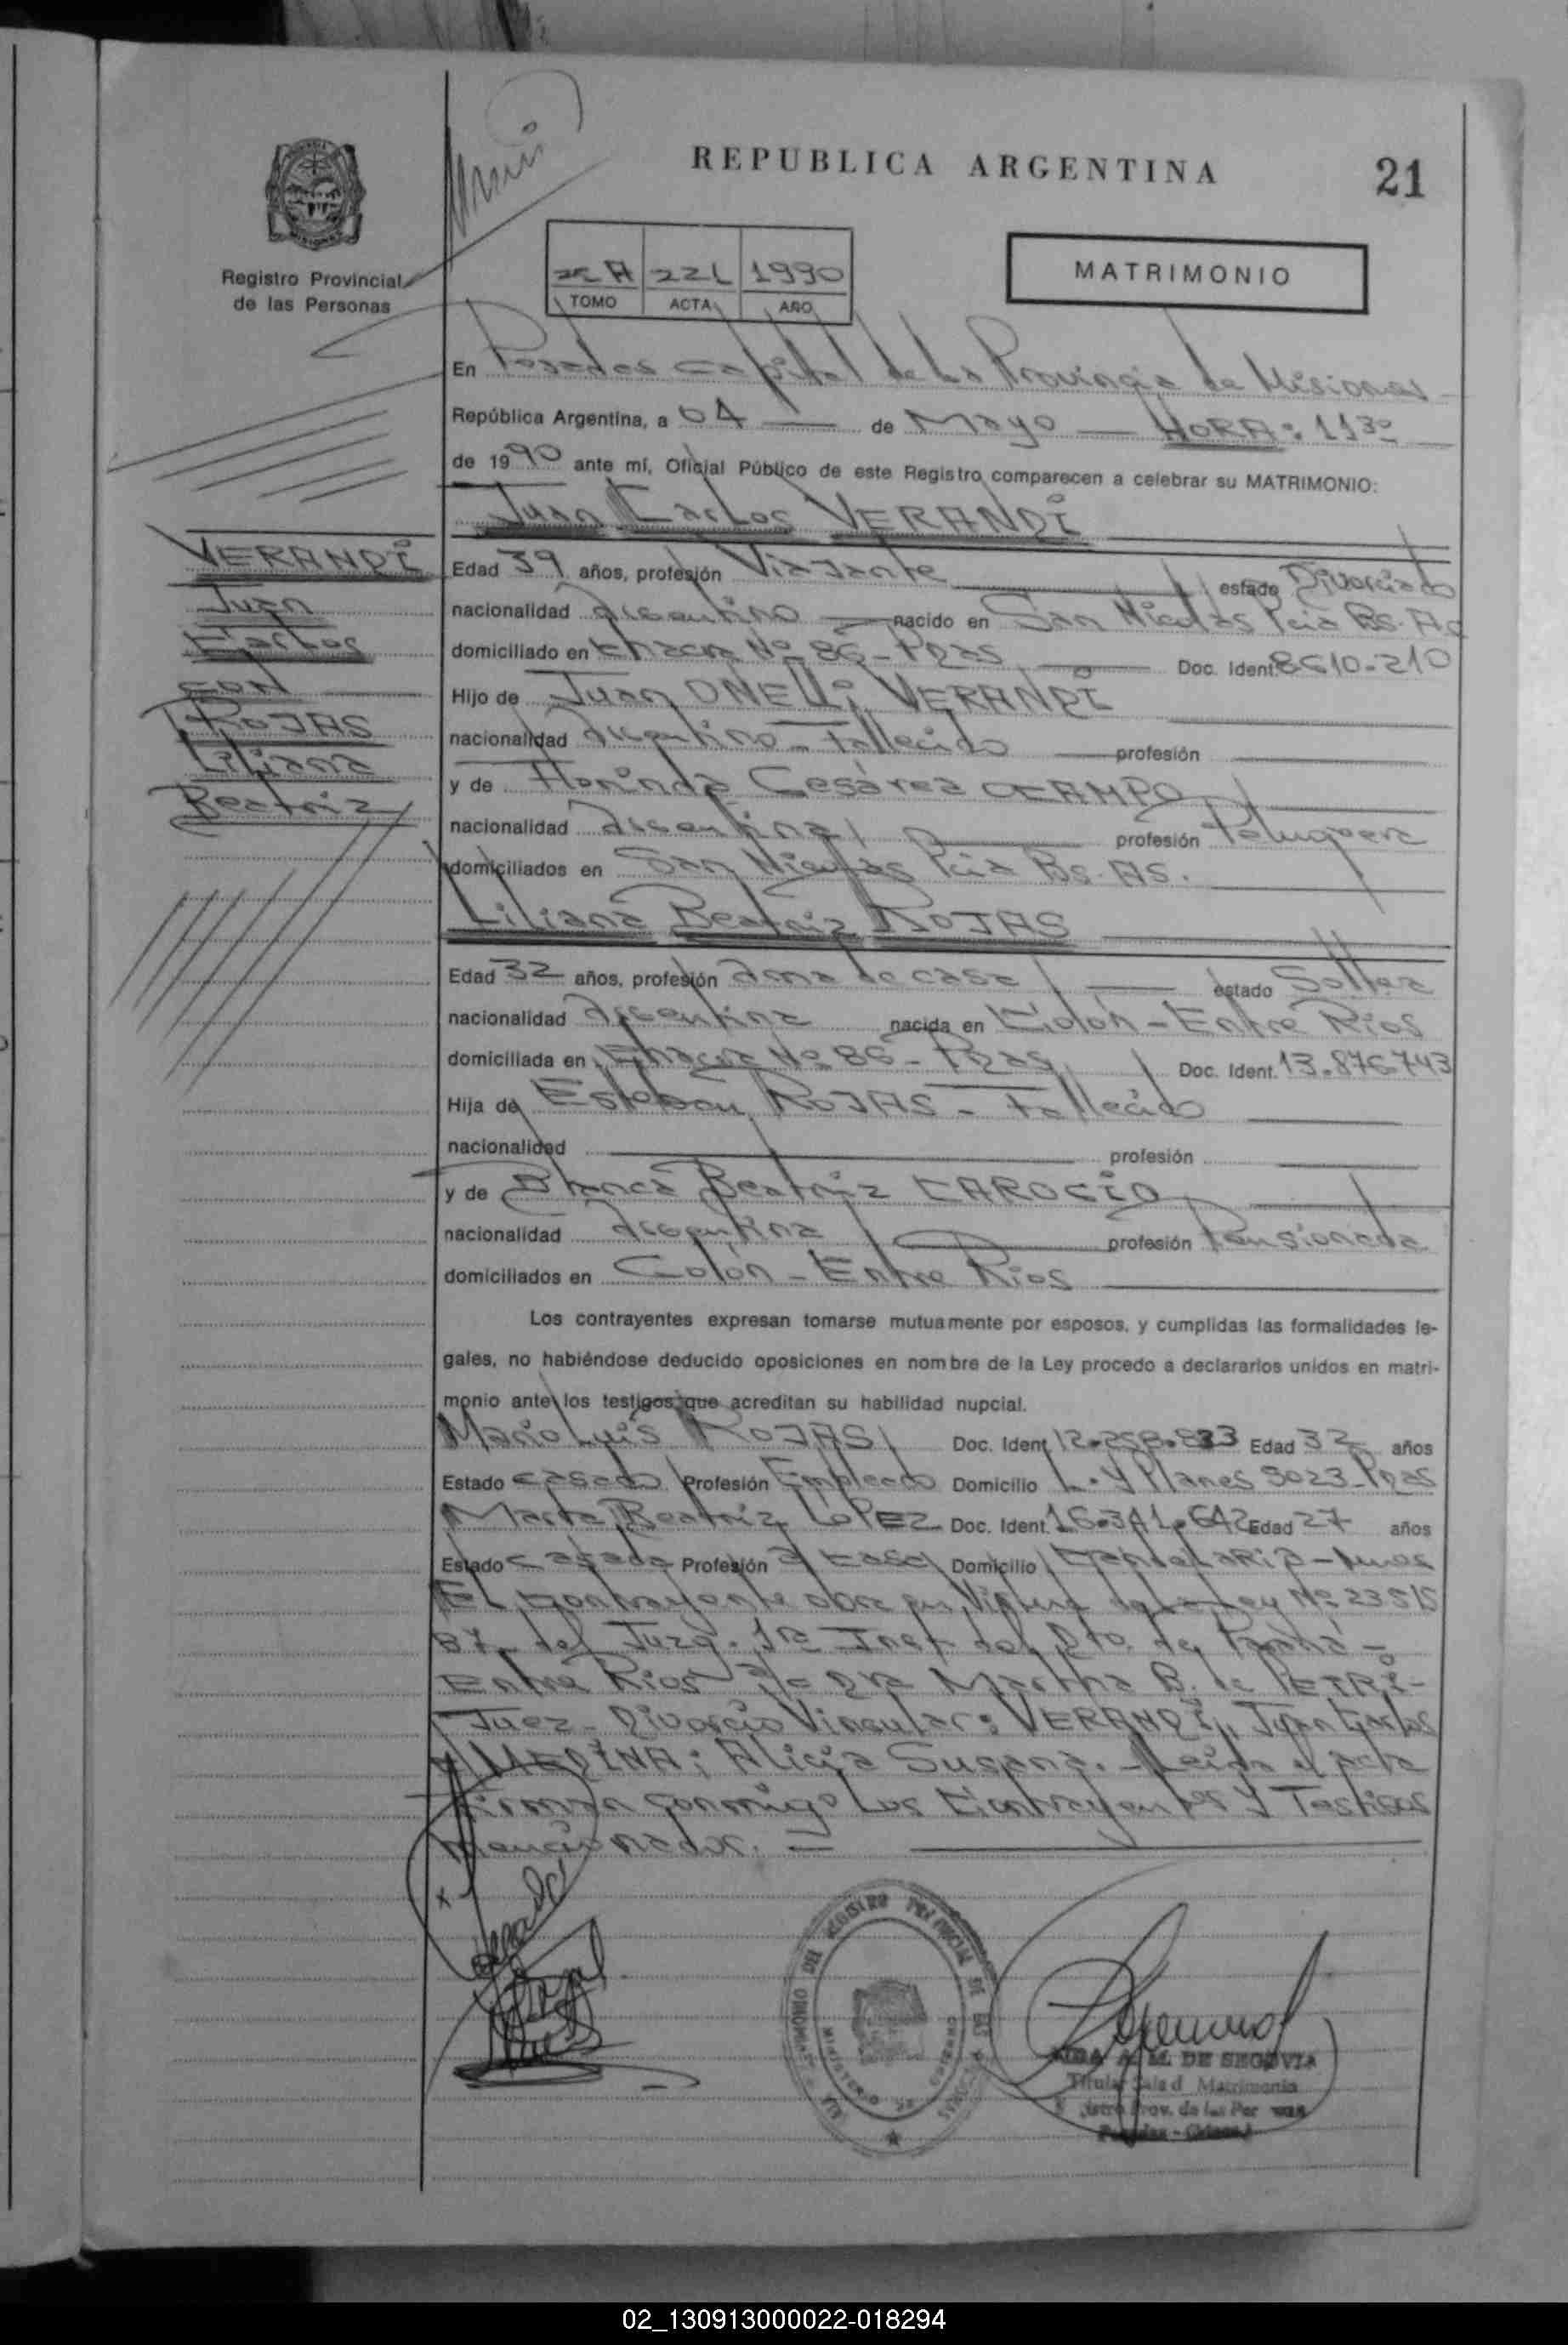 REPUBLICA ARGENTINA
21
Registro Provincial
de las Personas
2c A 221 1990
TOMO ACTA AÑO
MATRIMONIO
En Posadas Capital de La Provincia de Misiones
República Argentina, a 04 de Mayo HORA: 1130
de 1990 ante mí, Oficial Público de este Registro comparecen a celebrar su MATRIMONIO:
Juan Carlos VERANDI
VERANDI
Juan
Carlos
con
ROJAS
Liliana
Beatriz
Edad 39 años, profesión Viajante estado Divorciado
nacionalidad Argentino nacido en San Nicolás Pcia Bs. As
domiciliado en Chacra Nº 86 - Pdas Doc. Ident. 8610-210
Hijo de Juan ONELLi VERANDI
nacionalidad Argentino - Fallecido profesión
y de Florinda Cesárea OCAMPO
nacionalidad Argentina profesión Peluquera
domiciliados en San Nicolás Pcia Bs. AS.
Liliana Beatriz ROJAS
Edad 32 años, profesión Ama de casa estado Soltera
nacionalidad Argentina nacida en Colón - Entre Rios
domiciliada en Chacra Nº 86 - Pdas Doc. Ident. 13.876743
Hija de Esteban ROJAS - Fallecido
nacionalidad profesión
y de Blanca Beatriz CAROGIO
nacionalidad Argentina profesión Pensionada
domiciliados en Colón - Entre Rios
Los contrayentes expresan tomarse mutuamente por esposos, y cumplidas las formalidades le-
gales, no habiéndose deducido oposiciones en nombre de la Ley procedo a declararlos unidos en matri-
monio ante los testigos que acreditan su habilidad nupcial.
Mario Luis ROJAS Doc. Ident. Edad 32 años
Estado casado Profesión Empleado Domicilio L. y Planes 3023 - Pdas
Marta Beatriz LOPEZ Doc. Ident. 16.341.642 Edad 27 años
Estado casada Profesión casa Domicilio CandeLaRia - Mnes
El Contrayente obra por Virtud de La Ley Nº 23515
87 del Juzg. 1ra Inst del Dto. de Paraná -
Entre Rios a/c Dra Martha B. de PETRI -
Juez - Divorcio Vincular: VERANDI, Juan Carlos
y MEDINA; Alicia Susana. - Leida el acta
firman conmigo Los Contrayentes y Testigos
Mencionados. =
REGISTRO PROVINCIAL DE LAS PERSONAS
MINISTERIO DE GOBIERNO
AIDA A. M. DE SEGOVIA
Titular Sala d Matrimonio
istro Prov. de las Per nas
02_130913000022-018294